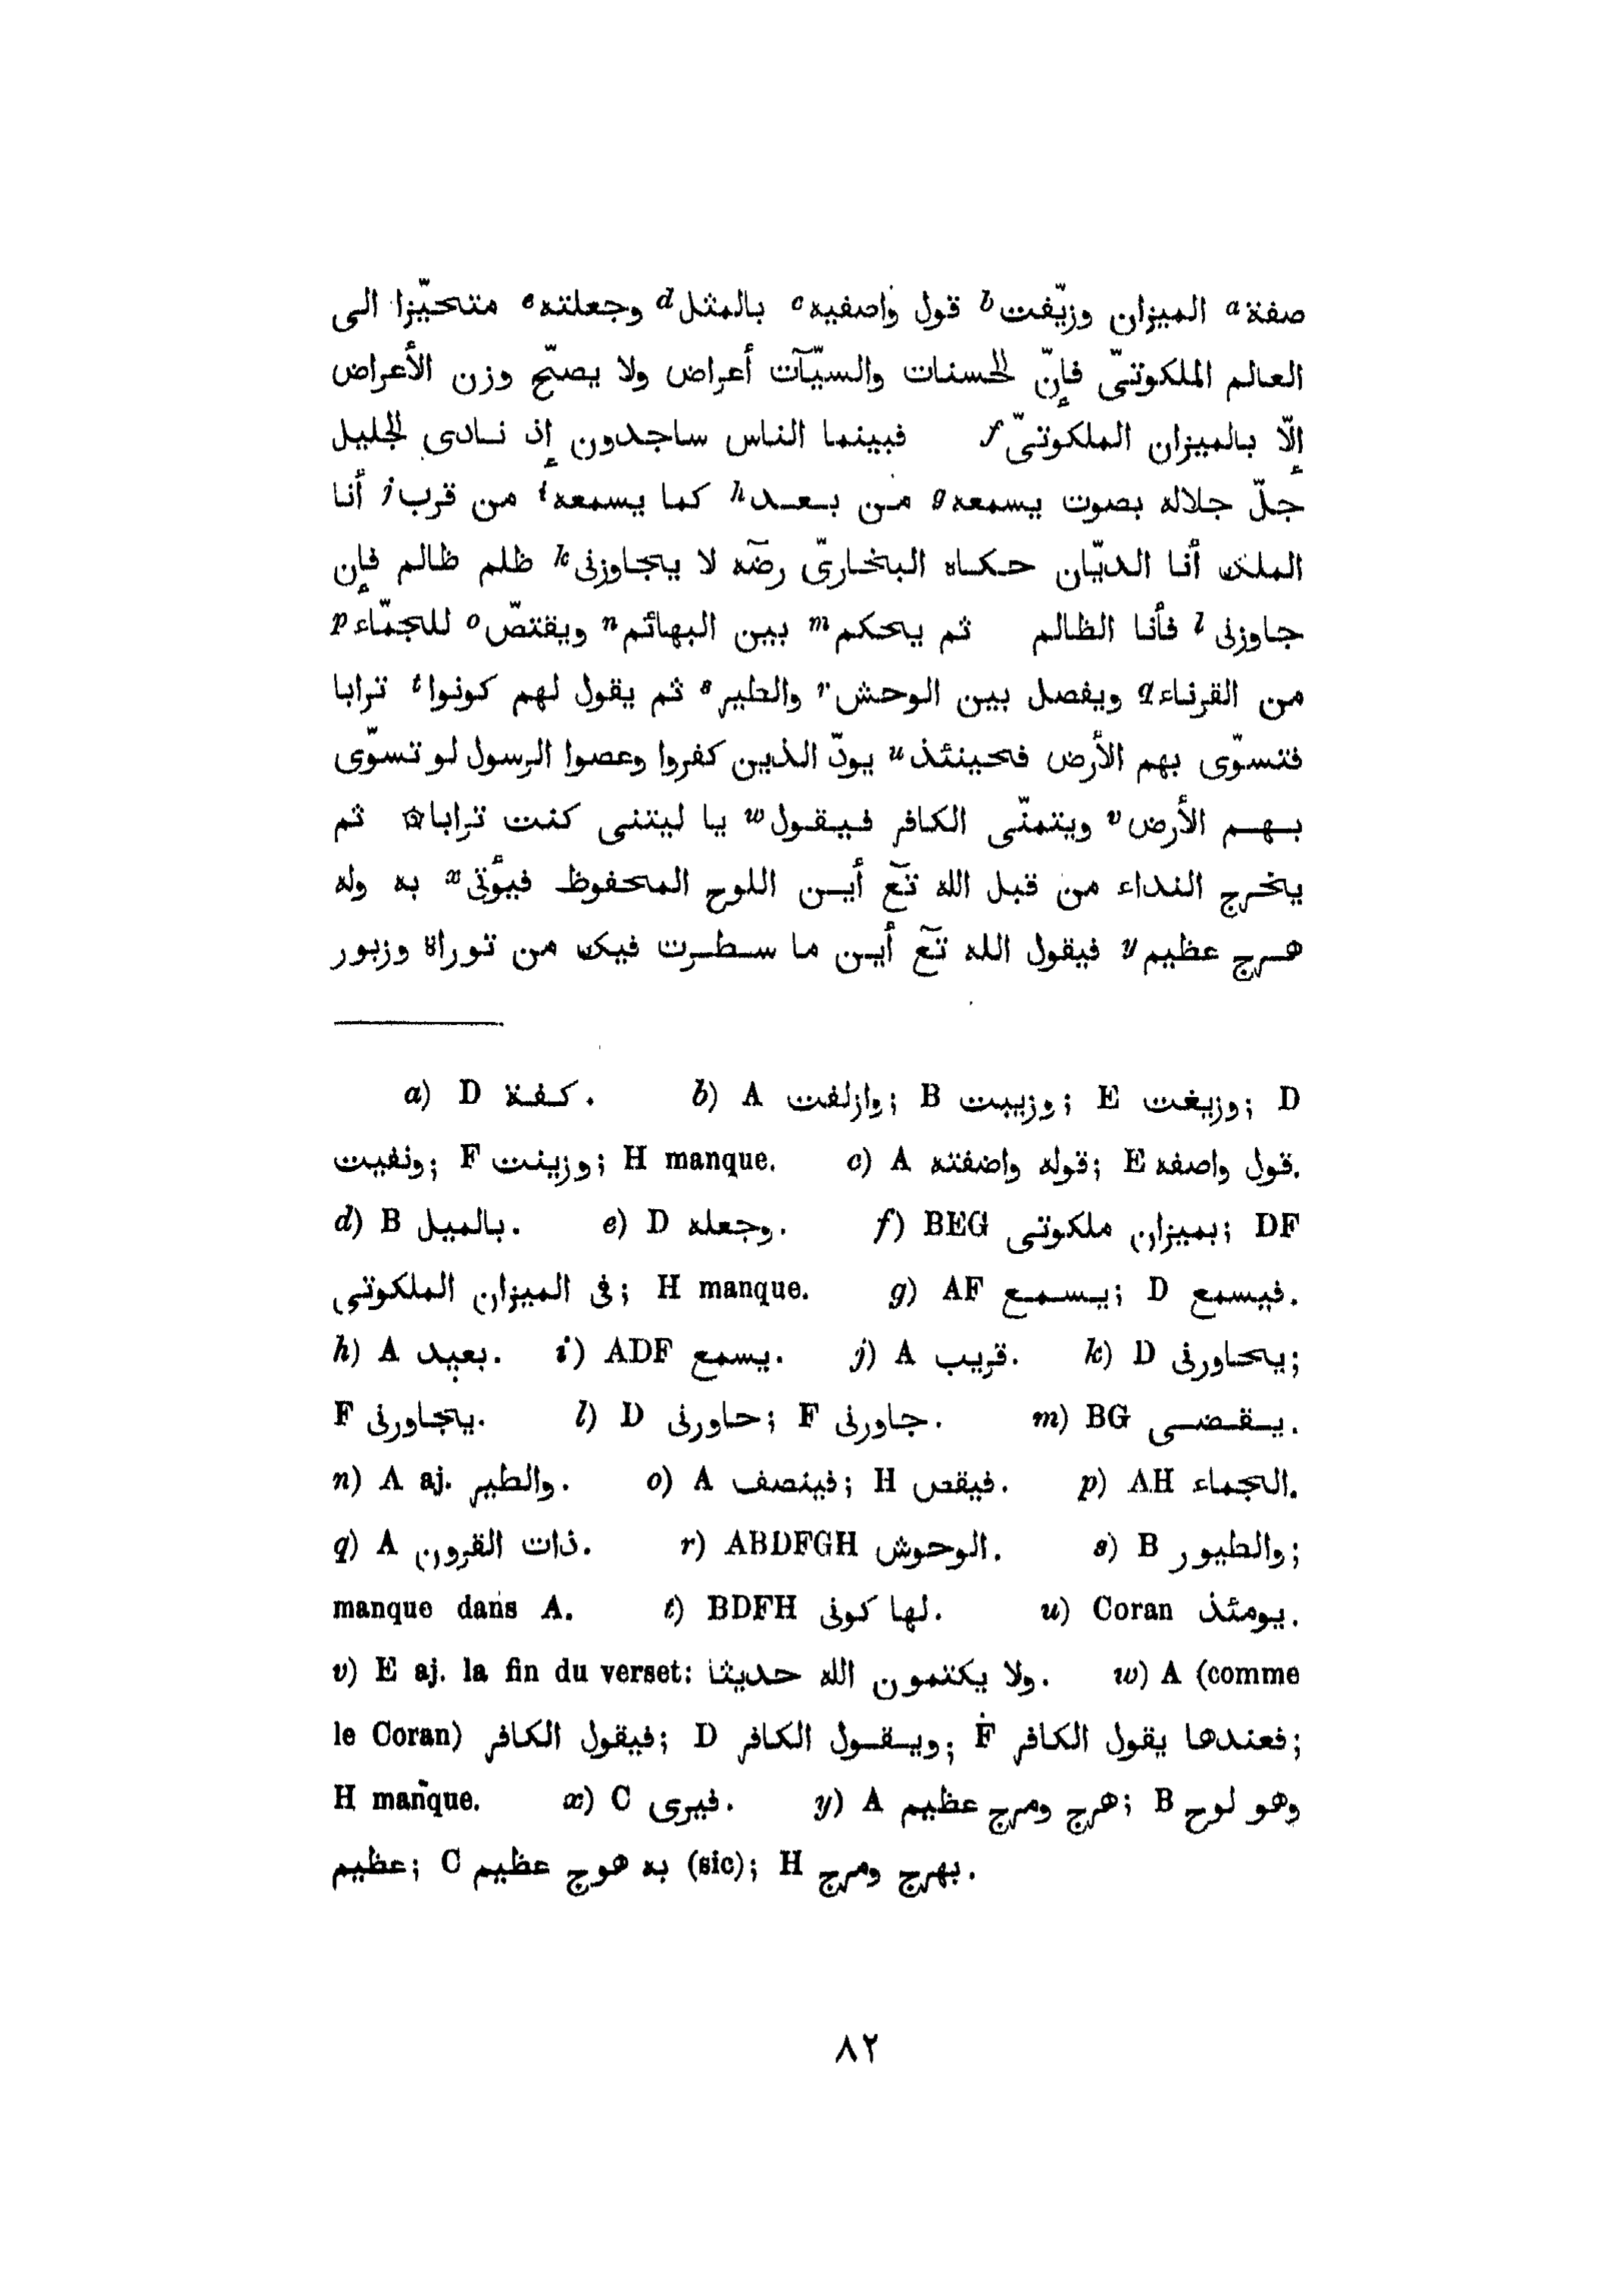 صفة a الميزان وزيّفت b قول واصفيه c بالمثل d وجعلته e متحيّزا الى
العالم الملكوتىّ فإنّ الحسنات والسيّآت أعراض ولا يصحّ وزن الأعراض
إلّا بالميزان الملكوتىّ f فبينما الناس ساجدون إذ نادى الجليل
جلّ جلاله بصوت يسمعه g من بعد h كما يسمعه i من قرب j أنا
الملك أنا الديّان حكاه البخارىّ رضّه لا يجاوزنى k ظلم ظالم فإن
جاوزنى l فأنا الظالم ثم يحكم m بين البهائم n ويقتصّ o للجمّاء p
من القرناء q ويفصل بين الوحش r والطير s ثم يقول لهم كونوا t ترابا
فتسوّى بهم الأرض فحينئذ u يودّ الذين كفروا وعصوا الرسول لو تسوّى
بهم الأرض v ويتمنّى الكافر فيقول w يا ليتنى كنت ترابا ۞ ثم
يخرج النداء من قبل الله تع أين اللوح المحفوظ فيؤتى x به وله
هرج عظيم y فيقول الله تع أين ما سطرت فيك من توراة وزبور
a) D كفة. b) A وازلفت; B وزيبت; E وزيغت; D
ونفيت; F وزينت; H manque. c) A قوله واضفته; E قول واصفه.
d) B بالميل. e) D وجعله. f) BEG بميزان ملكوتى; DF
فى الميزان الملكوتى; H manque. g) AF يسمع; D فيسمع.
h) A بعيد. i) ADF يسمع. j) A قريب. k) D يحاورنى;
F يجاورنى. l) D حاورنى; F جاورنى. m) BG يقضى.
n) A aj. والطير. o) A فينصف; H فيقص. p) AH الجماء.
q) A ذات القرون. r) ABDFGH الوحوش. s) B والطيور;
manque dans A. t) BDFH لها كونى. u) Coran يومئذ.
v) E aj. la fin du verset: ولا يكتمون الله حديثا. w) A (comme
le Coran) فيقول الكافر; D ويقول الكافر; F فعندها يقول الكافر;
H manque. x) C فيرى. y) A هرج ومرج عظيم; B وهو لوح
عظيم; C به هوج عظيم (sic); H بهرج ومرج.
٨٢